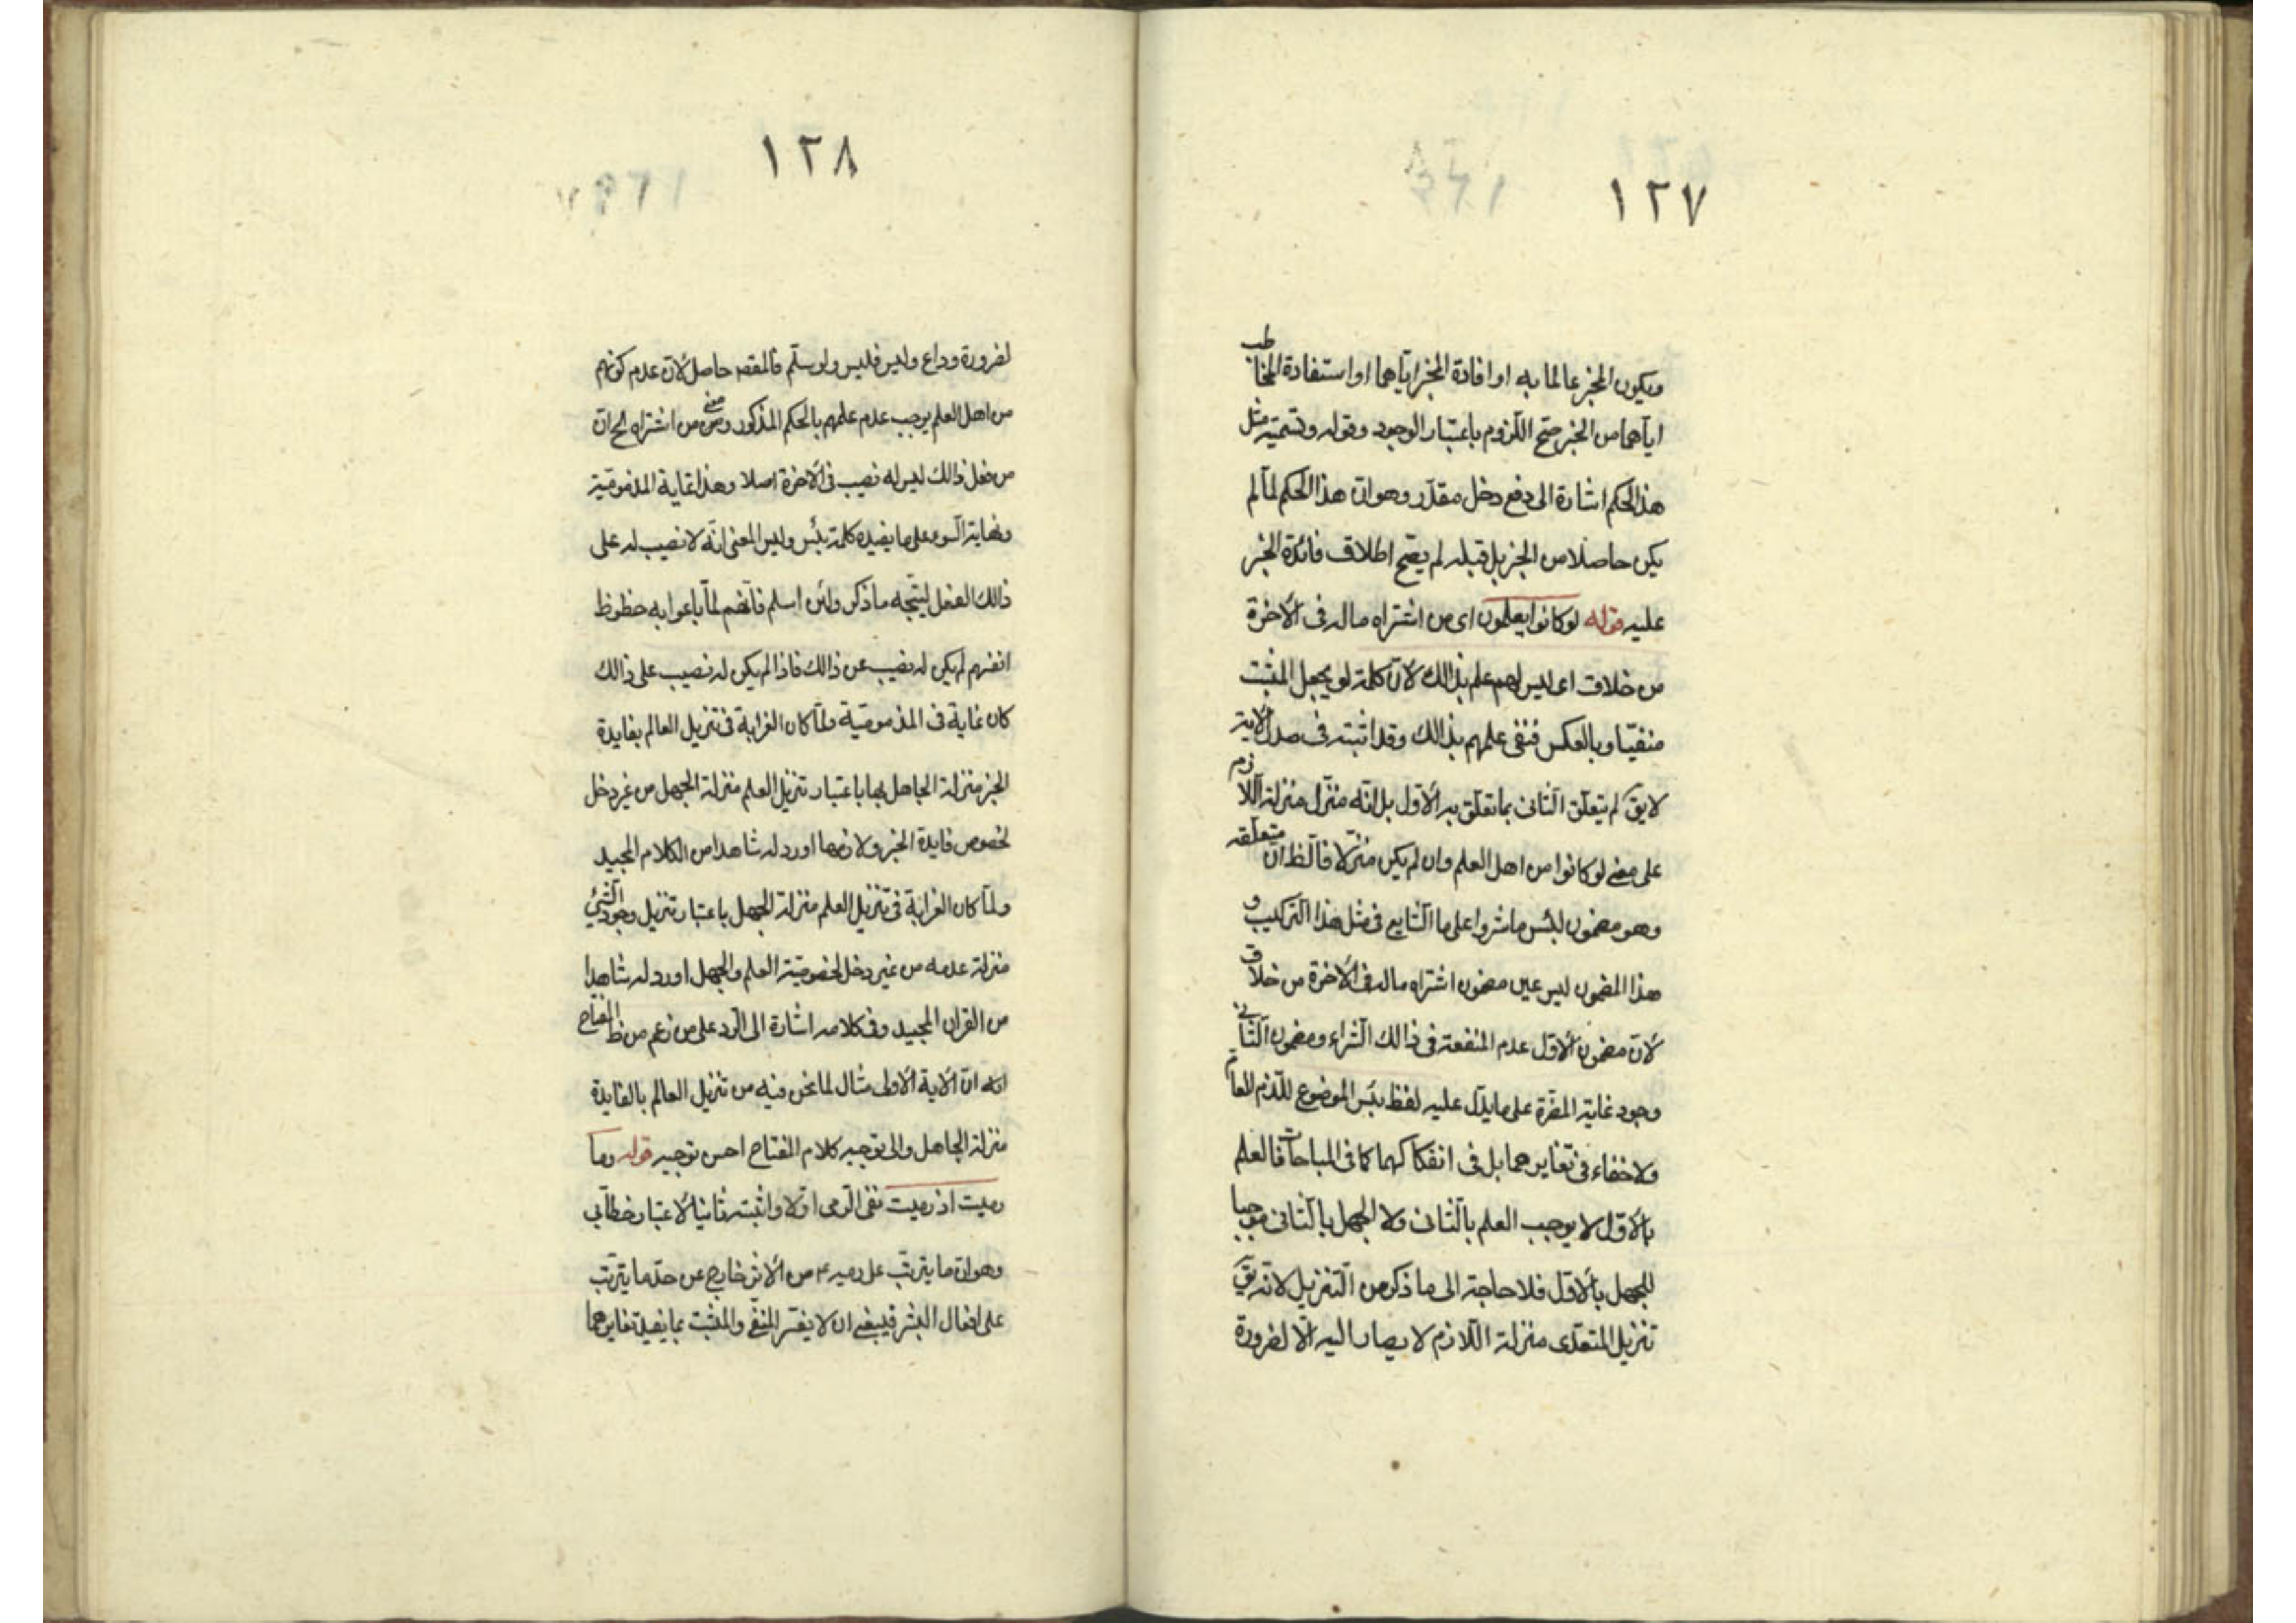 ١٢٧
ويكون المخبر عالما به او افادة المخبر اياهما او استفادة المخاطب
اياهما من الخبر صح اللزوم باعتبار الوجود وقوله وتسمية مثل
هذا الحكم اشارة الى دفع دخل مقدّر وهو ان هذا الحكم لمّا لم
يكن حاصلا من الخبر بل قبله لم يصح اطلاق فائدة الخبر
عليه قوله لو كانوا يعلمون اى من اشتراه ماله فى الآخرة
من خلاق اى ليس لهم علم بذالك لانّ كلمة لو يجعل المثبت
منفيّا وبالعكس فنفى علمهم بذالك وقد اثبته فى صدر الاية
لا يق لم يتعلق الثانى بما تعلّق به الاوّل بل انّه منزّل منزلة اللازم
على معنى لو كانوا من اهل العلم وان لم يكن منزّلا فالظ ان متعلقه
وهو مضمون لبئس ما شروا على ما الشايع فى مثل هذا التركيب و
هذا المضمون ليس عين مضمون اشتراه ماله فى الآخرة من خلاق
لانّ مضمون الاوّل عدم المنفعة فى ذالك الشراء ومضمون الثانى
وجود غاية المضرّة على ما يدلّ عليه لفظ بئس الموضوع للذم العام
ولا خفاء فى تغايرهما بل فى انفكاكهما كما فى المباحات فالعلم
بالاوّل لا يوجب العلم بالثانى ولا الجهل بالثانى موجبا
للجهل بالاوّل فلا حاجة الى ما ذكر من التنزيل لانّه يق
تنزيل المتعدّى منزلة اللازم لا يصار اليه الّا لضرورة
١٢٨
لضرورة وداع وليس فليس ولو سلّم فالمقص حاصل لانّ عدم كونهم
من اهل العلم يوجب عدم علمهم بالحكم المذكور ومعنى من اشتراه الخ انّ
من فعل ذالك ليس له نصيب فى الآخرة اصلا وهذا غاية المذموميّة
ونهاية السوء على ما يفيده كلمة بئس وليس المعنى انّه لا نصيب له على
ذالك الفعل ليتّجه ما ذكر ولئن اسلم فانّهم لمّا باعوا به حظوظ
انفسهم لم يكن له نصيب عن ذالك فاذا لم يكن له نصيب على ذالك
كان غاية فى المذموميّة ولمّا كان الغرابة فى تنزيل العالم بفايدة
الخبر منزلة الجاهل بها باعتبار تنزيل العلم منزلة الجهل من غير دخل
لخصوص فايدة الخبر ولازمها اورد له شاهدا من الكلام المجيد
ولمّا كان الغرابة فى تنزيل العلم منزلة الجهل باعتبار تنزيل وجود الشئ
منزلة عدمه من غير دخل لخصوصيّة العلم والجهل اورد له شاهدا
من القران المجيد وفى كلامه اشارة الى الرّد على من زعم من ظ المفتاح
انّ الآية الاولى مثال لما نحن فيه من تنزيل العالم بالفايدة
منزلة الجاهل والى توجيه كلام المفتاح احسن توجيه قوله وما
رميت اذ رميت نفى الرّمى اوّلا واثبته ثانيا لاعتبار خطابى
وهو ان ما يترتّب على رميه ع من الاثر خارج عن حدّ ما يترتّب
على افعال البشر فينبغى ان لا يفسّر المنفى والمثبت بما يفيد تغايرهما